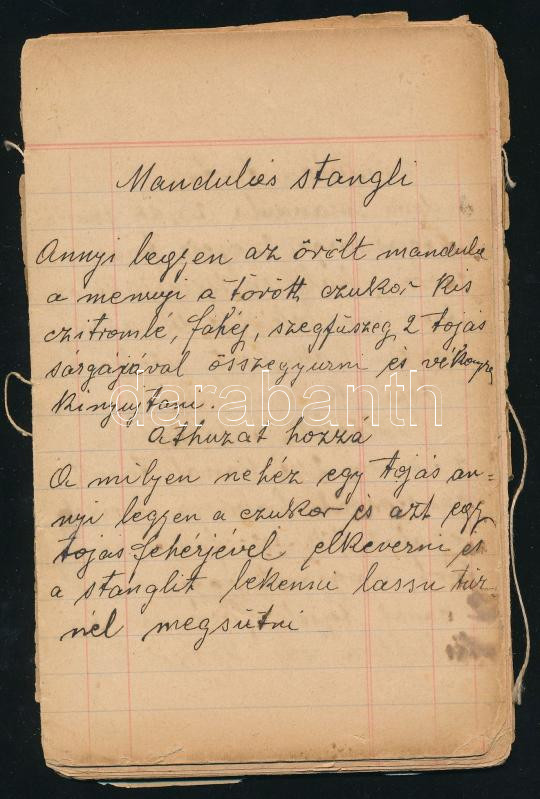 Mandulás stangli
Annyi legyen az örölt mandula
a mennyi a törött czukor kis
czitromlé, fahéj, szegfüszeg 2 tojás
sárgájával összegyurni és vékonyra
kinyujtani.
darabanth
áthuzat hozza
A milyen nehéz egy tojás an=
nyi legyen a czukor és azt egy
tojás fehérjével elkeverni és
a stanglit bekenni lassu tüz
nél megsütni